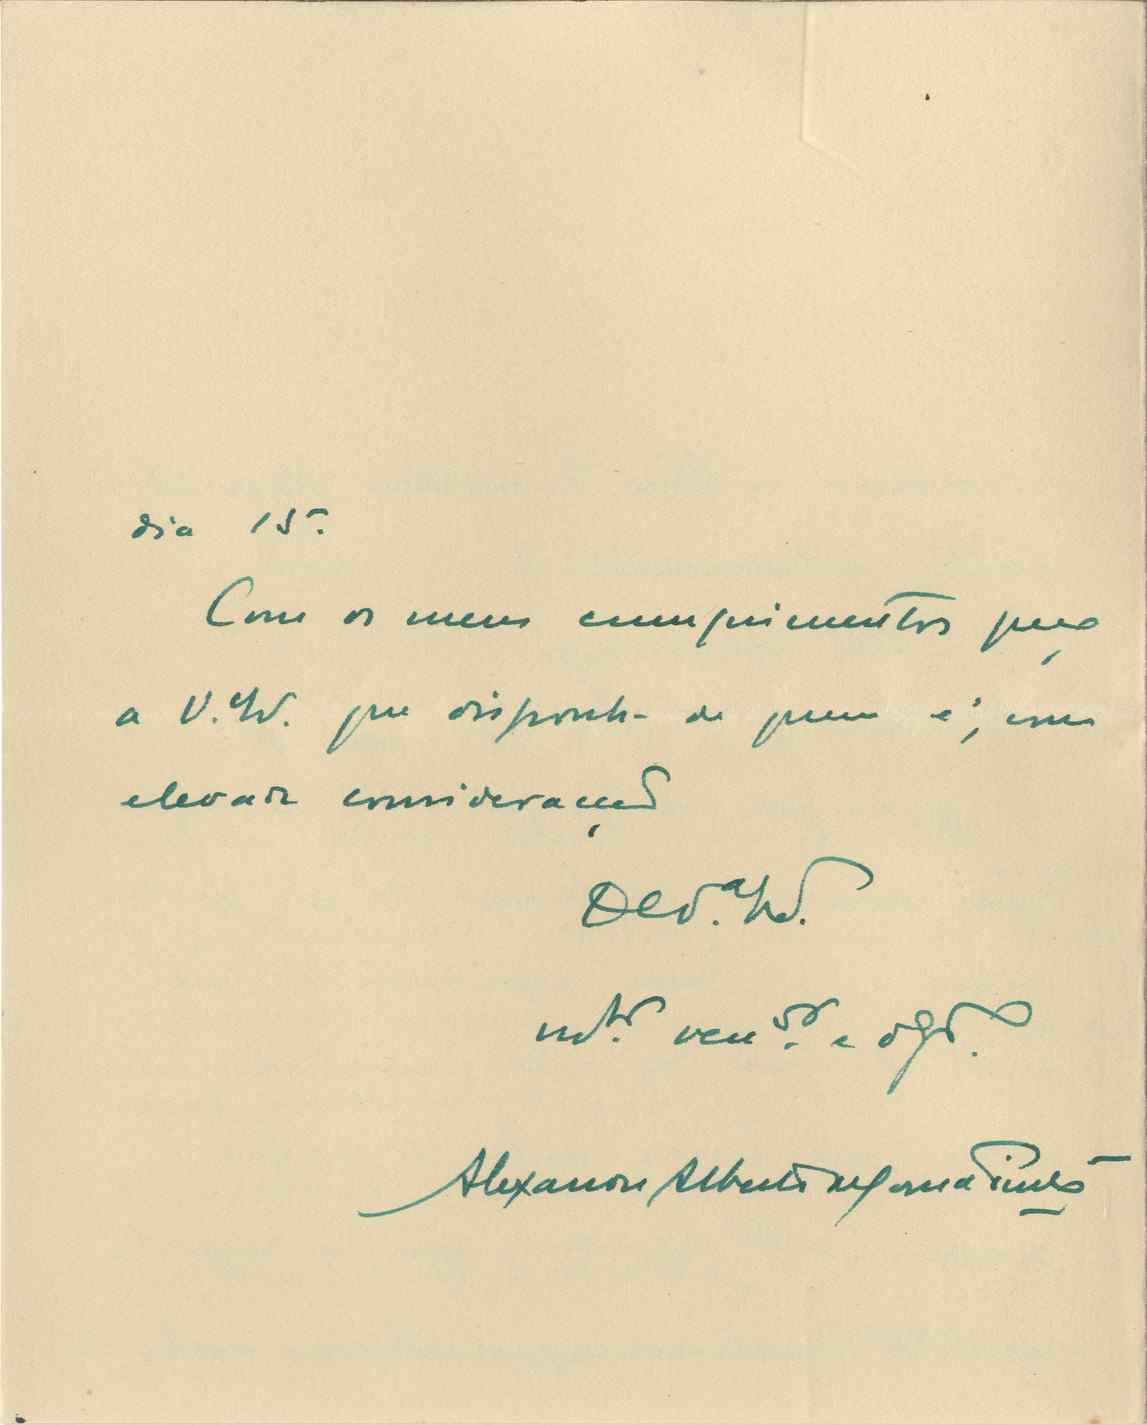 dia 15.
Com os meus cumprimentos peço
a V. Ex. que disponha de quem é, com
elevada consideração
De V. Ex.
mt.º ven.or e obg.do
Alexandre Alberto de Sousa Pinto